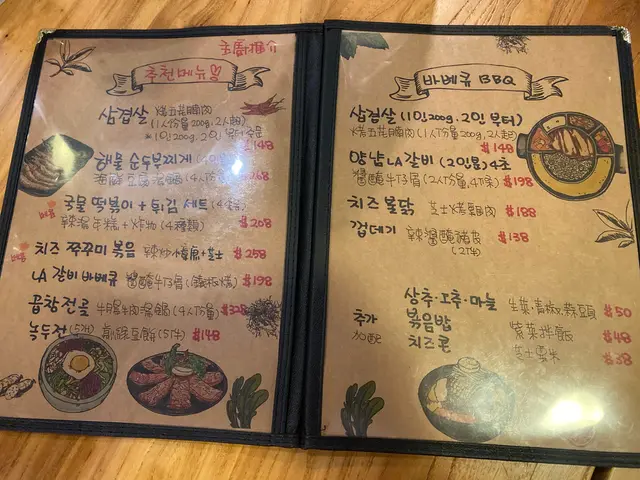 主廚推介
추천메뉴
삼겹살 烤五花腩肉
(1人份量200g, 2人起)
1인 200g, 2인 부터 주문
$148
해물 순두부찌개
海鮮豆腐湯鍋 (4人份量) $268
국물 떡볶이 + 튀김 세트
辣湯年糕 + 炸物 (4種類) $208
치즈 쭈꾸미 볶음 $258
LA 갈비 바베큐 醬醃牛仔骨 (鐵板燒) $198
곱창전골 牛腸牛肉湯鍋 (4人份量)
녹두전 (5개) 綠豆餅 (5件) $148
바베큐 BBQ
삼겹살 (1인 200g, 2인 부터)
烤五花腩肉 (1人份量200g, 2人起)
$148
양념 LA 갈비 (2인용) 4조
醬醃牛仔骨 (2人份量, 4件) $198
치즈 불닭 芝士烤雞肉 $188
껍데기 辣醬醃豬皮 $138
상추·고추·마늘 生菜·青椒·蒜頭 $50
추가 볶음밥 紫菜拌飯 $48
加配 치즈콘 芝士粟米 $38